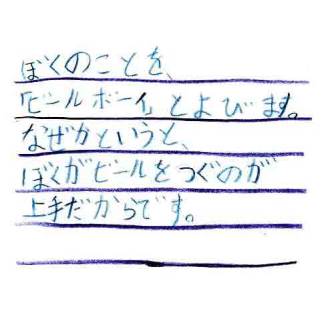 ぼくのことを、
「ビールボーイ」とよびます。
なぜかというと、
ぼくがビールをつぐのが
上手だからです。